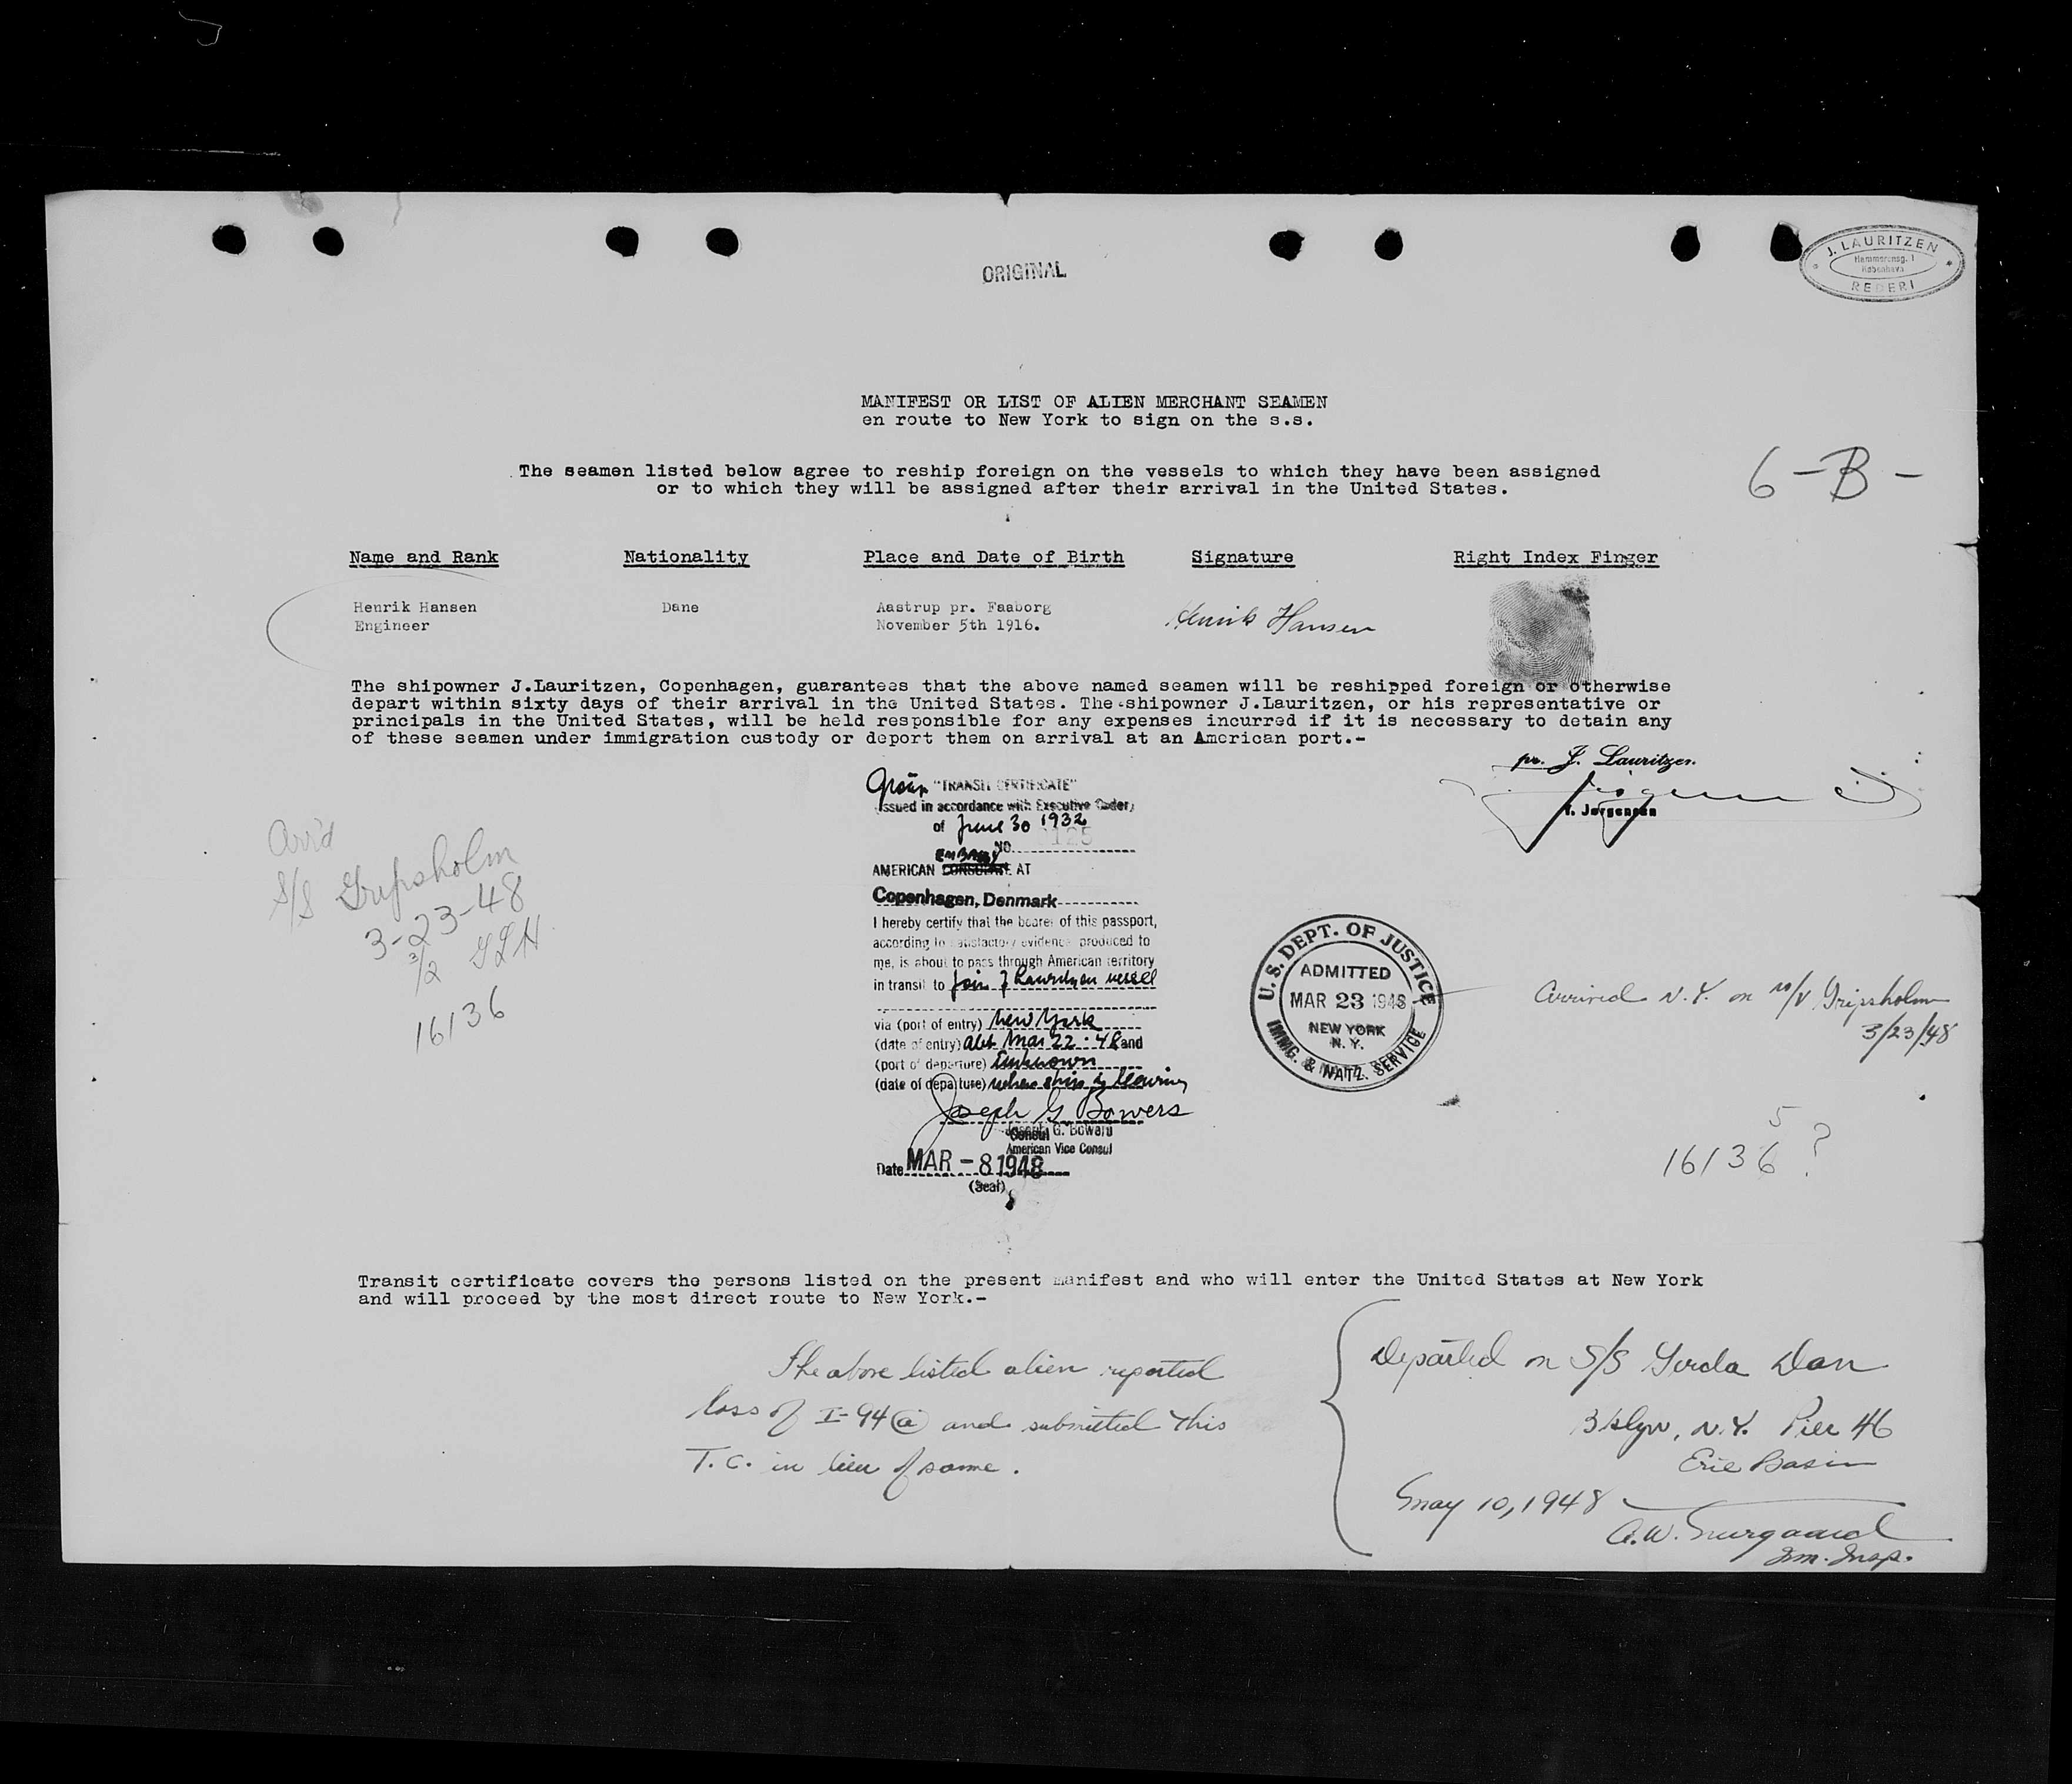 ORIGINAL
J. LAURITZEN
Hammerensg. 1
København
REDERI
MANIFEST OR LIST OF ALIEN MERCHANT SEAMEN
en route to New York to sign on the s.s.
6-B-
The seamen listed below agree to reship foreign on the vessels to which they have been assigned
or to which they will be assigned after their arrival in the United States.
Name and Rank Nationality Place and Date of Birth Signature Right Index Finger
Henrik Hansen Dane Aastrup pr. Faaborg Henrik Hansen
Engineer November 5th 1916.
The shipowner J.Lauritzen, Copenhagen, guarantees that the above named seamen will be reshipped foreign or otherwise
depart within sixty days of their arrival in the United States. The shipowner J.Lauritzen, or his representative or
principals in the United States, will be held responsible for any expenses incurred if it is necessary to detain any
of these seamen under immigration custody or deport them on arrival at an American port.-
pr. J. Lauritzen.
T. Jørgensen
Group "TRANSIT CERTIFICATE"
Issued in accordance with Executive Order,
of June 30 1932
NO. 125
EMBASSY
AMERICAN CONSULATE AT
Copenhagen, Denmark
I hereby certify that the bearer of this passport,
according to satisfactory evidence produced to
me, is about to pass through American territory
in transit to join J Lauritzen vessel
via (port of entry) New York
(date of entry) abt Mar 22 - 48 and
(port of departure) Unknown
(date of departure) when ship is leaving
Joseph G Bowers
Joseph G. Bowers
Consul
American Vice Consul
Date MAR - 8 1948
(Seal)
Arr'd
S/S Gripsholm
3-23-48
3/2 GLH
16136
U.S. DEPT. OF JUSTICE
ADMITTED
MAR 23 1948
NEW YORK
N.Y.
IMMG. & NATZ. SERVICE
Arrived N.Y. on M/V Gripsholm
3/23/48
5
16136 ?
Transit certificate covers the persons listed on the present manifest and who will enter the United States at New York
and will proceed by the most direct route to New York.-
The above listed alien reported
loss of I-94(a) and submitted this
T.C. in lieu of same.
Departed on S/S Gerda Dan
Bklyn, N.Y. Pier 46
Erie Basin
May 10, 1948
A.W.
Im. Insp.